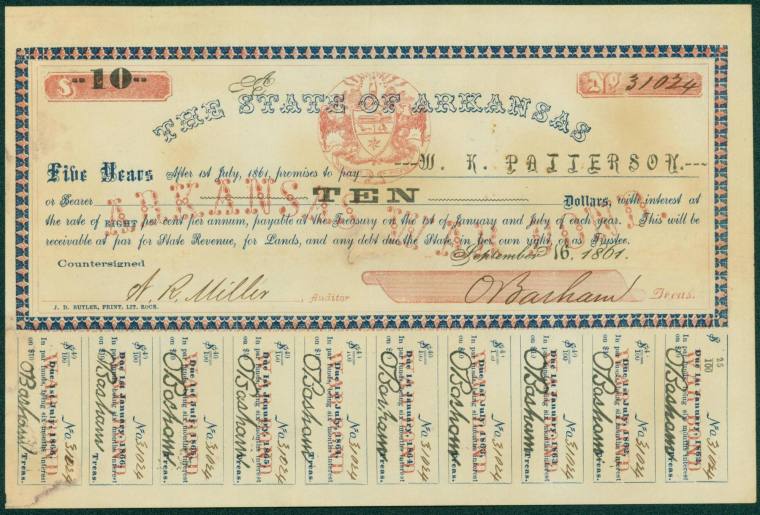 $ --10--
A
No 31024
THE STATE OF ARKANSAS
Five Years After 1st July, 1861, promises to pay ---W. K. PATTERSON,---
or Bearer TEN Dollars, with interest at
the rate of EIGHT per cent per annum, payable at the Treasury on the 1st of January and July of each year. This will be
receivable at par for State Revenue, for Lands, and any debt due the State, in her own right, or as Trustee.
ARKANSAS WAR BOND.
September 16, 1861.
Countersigned
N. R. Miller, Auditor
O Basham Treas.
J. D. BUTLER, PRINT. LIT. ROCK.
$ 40/100 No 31024
Due 1st July, 1866,
In par funds, being six months interest
on $10
O Basham Treas.
$ 40/100 No 31024
Due 1st January, 1866,
In par funds, being six months interest
on $10
O Basham Treas.
$ 40/100 No 31024
Due 1st July, 1865,
In par funds, being six months interest
on $10
O Basham Treas.
$ 40/100 No 31024
Due 1st January, 1865,
In par funds, being six months interest
on $10
O Basham Treas.
$ 40/100 No 31024
Due 1st July, 1864,
In par funds, being six months interest
on $10
O Basham Treas.
$ 40/100 No 31024
Due 1st January, 1864,
In par funds, being six months interest
on $10
O Basham Treas.
$ 40/100 No 31024
Due 1st July, 1863,
In par funds, being six months interest
on $10
O Basham Treas.
$ 40/100 No 31024
Due 1st January, 1863,
In par funds, being six months interest
on $10
O Basham Treas.
$ 40/100 No 31024
Due 1st July, 1862,
In par funds, being six months interest
on $10
O Basham Treas.
$ 25/100 No 31024
Due 1st January, 1862,
In par funds, being six months interest
on $10
O Basham Treas.